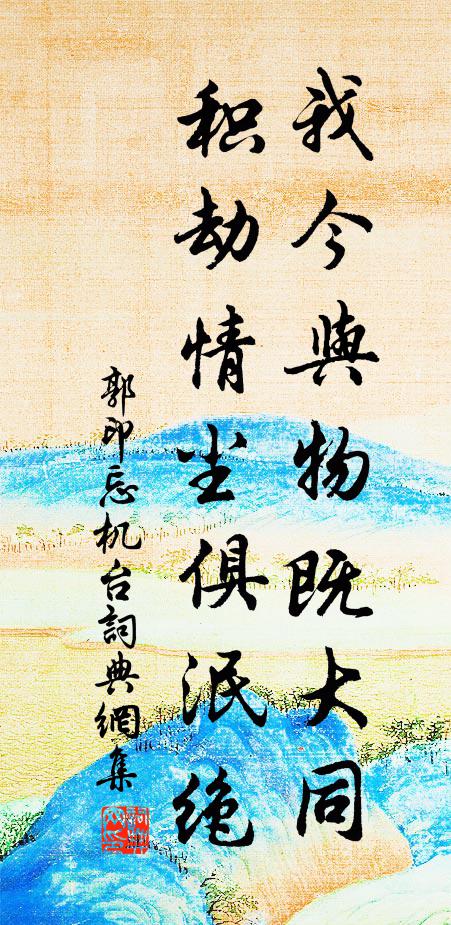 我今與物既大同
积劫情尘俱泯绝
郭印忘机台詞典網集